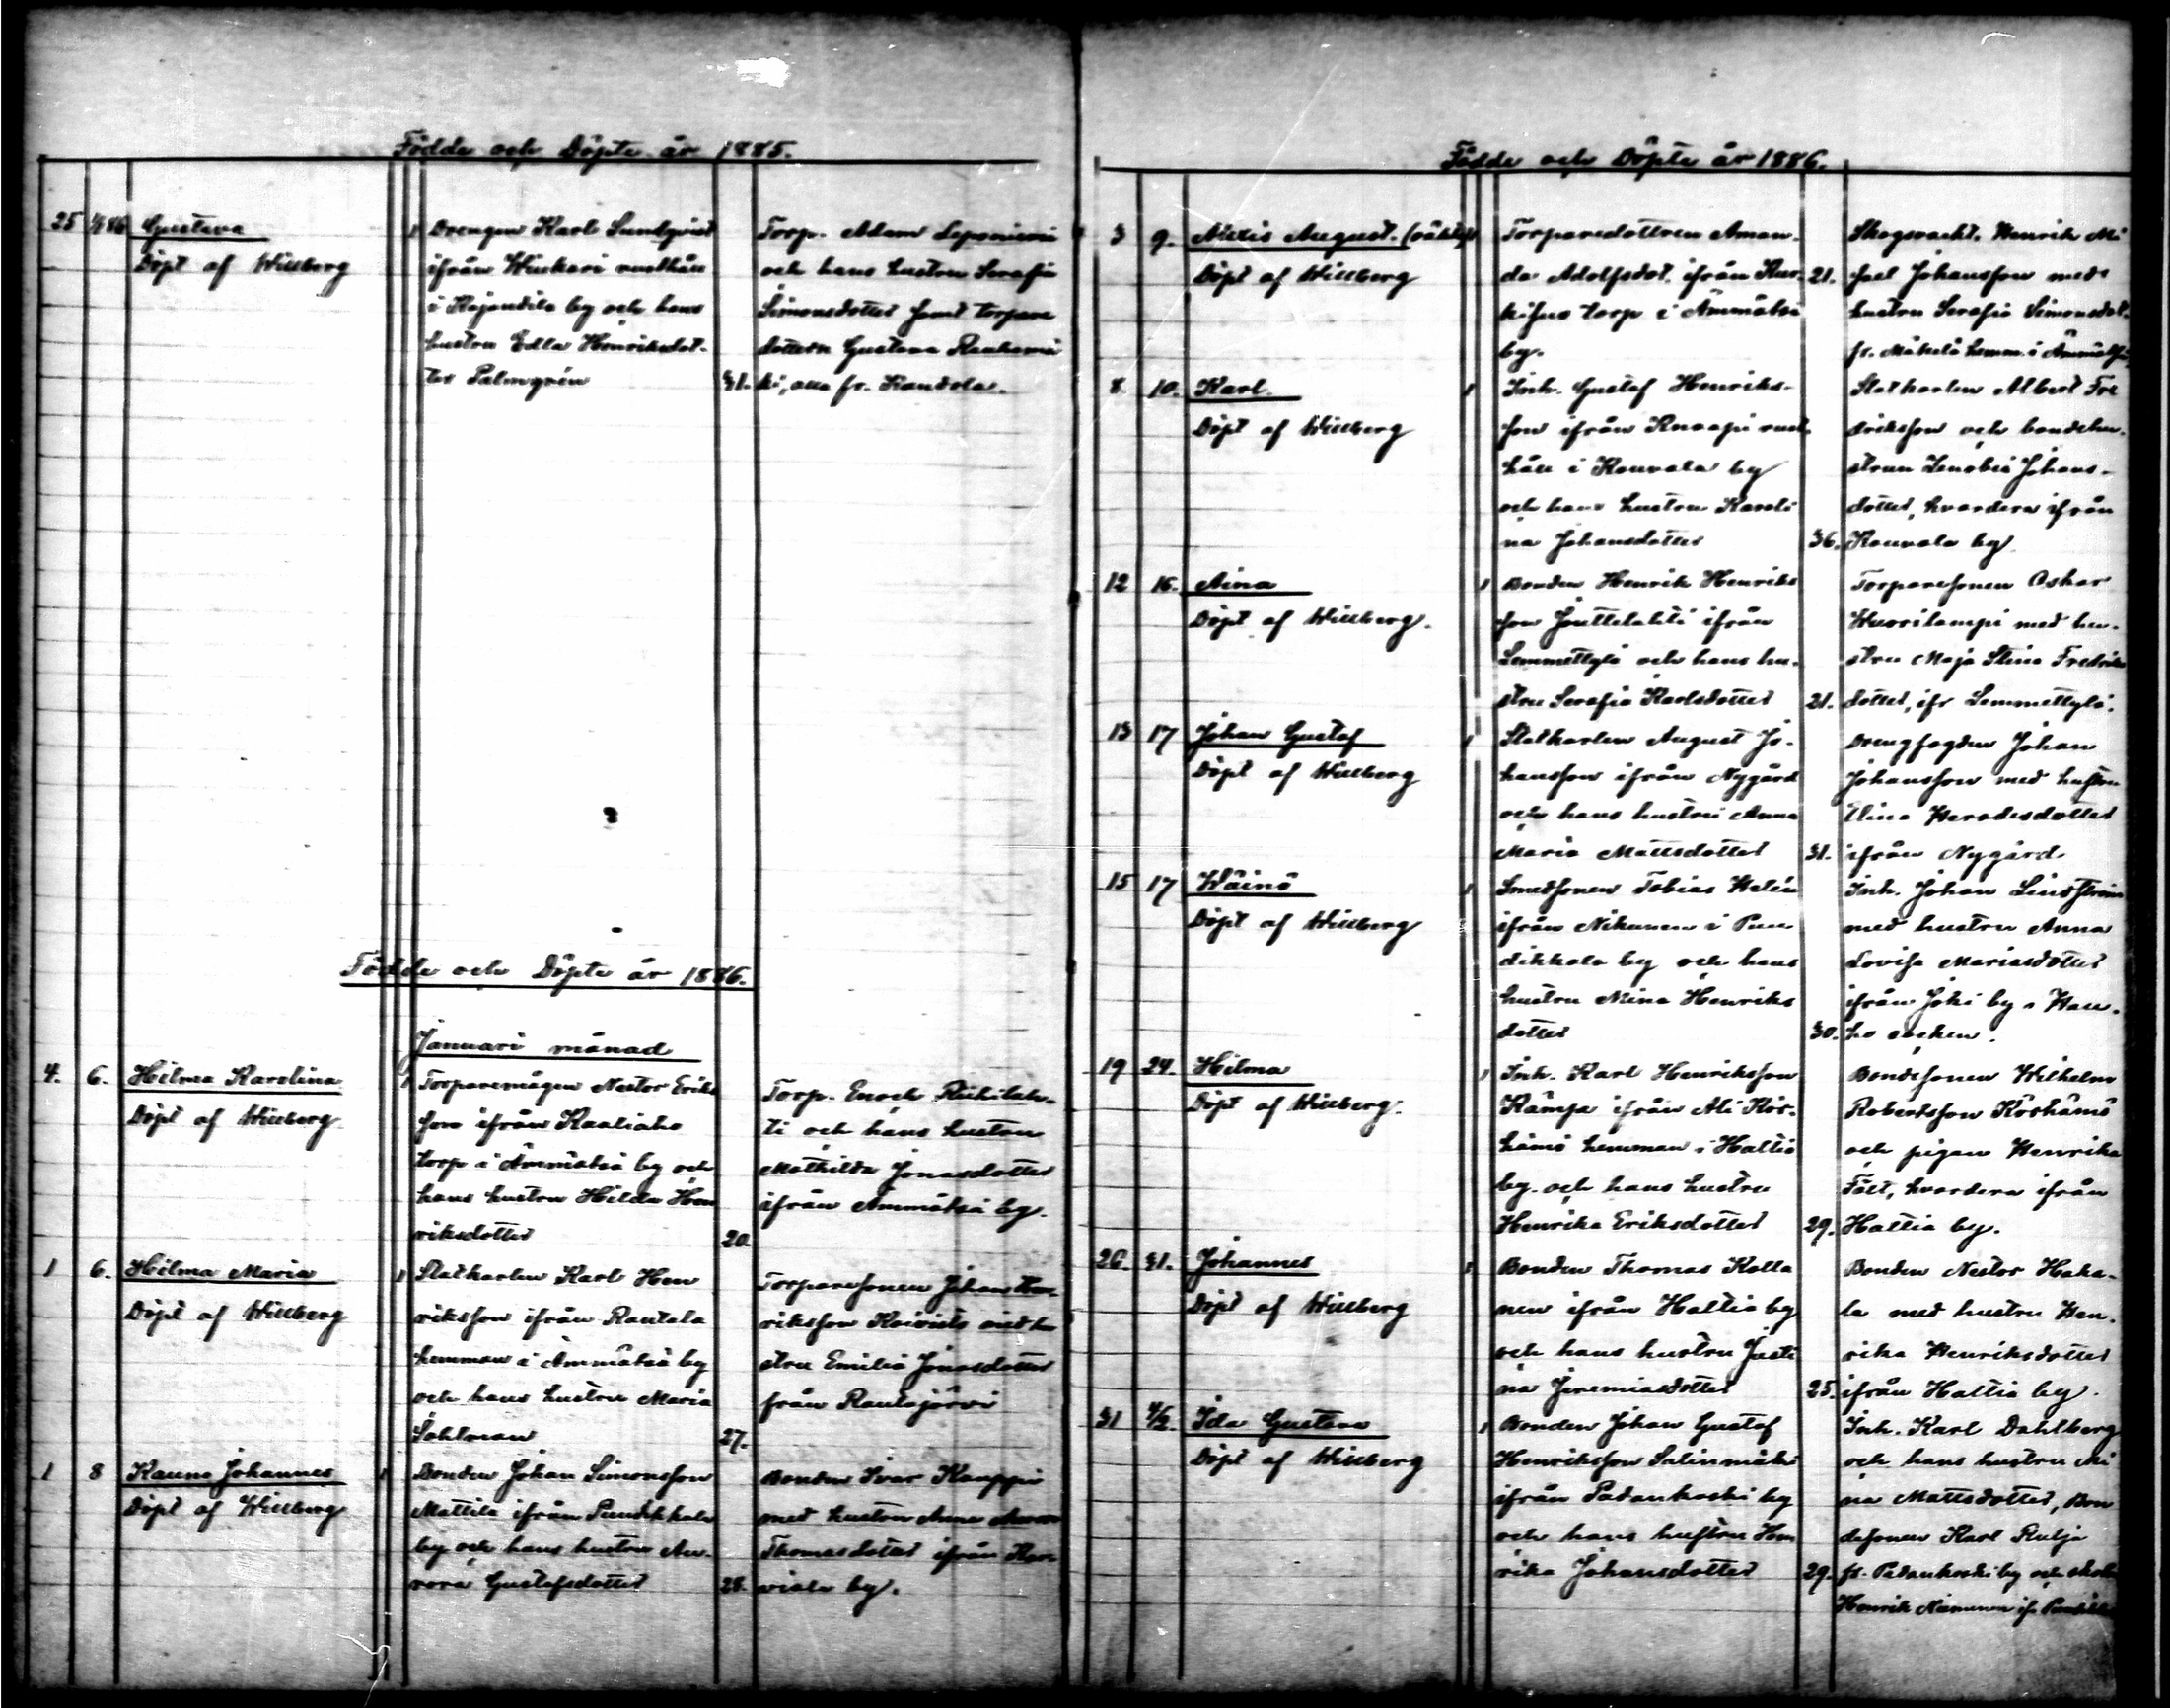 Födde och Döpte år 1885.
25 1/1 86 Gustava
Döpt af Willberg
1 Drengen Karl Sundqvist
ifrån Winkari rusthåll
i Kojandila by och hans
hustru Edla Henriksdot-
ter Palmgrén 31.
Torp. Adam Leponiemi
och hans hustru Serafia
Simonsdotter samt torpare
dottern Gustava Rauhamä
ki, alla fr. Kandola.
Födde och Döpte år 1886.
Januari månad
4. 6. Hilma Karolina
Döpt af Willberg
1 Torparemågen Nestor Eriks
son ifrån Kaaliaho
torp i Ämmätsä by och
hans hustru Hilda Hen
riksdotter 20.
Torp. Enoch Riihilah-
ti och hans hustru
Mathilda Jonasdotter
ifrån Ämmätsä by.
1 6. Hilma Maria
Döpt af Willberg
1 Statkarlen Karl Hen
riksson ifrån Rantala
hemman i Ämmätsä by
och hans hustru Maria
Sahlman 27.
Torparesonen Johan Hen-
riksson Koivisto med hu
stru Emilia Jonasdotter
från Rautajärvi
1 8 Kauno Johannes
Döpt af Willberg
1 Bonden Johan Simonsson
Mattila ifrån Pundikkala
by och hans hustru Au-
rora Gustafsdotter 28.
Bonden Ivar Kauppi
med hustru Anna
Thomasdotter ifrån Kar-
viala by.
Födde och Döpte år 1886.
3 9. Alexis August. (oäkta)
Döpt af Willberg
Torparedottren Aman-
da Adolfsdot. ifrån Kur-
kisuo torp i Ämmätsä
by. 21.
Skogsvackt. Henrik Mi
kael Johansson med
hustru Serafia Simonsdot.
fr. Mäkelä hemm. i Ämmätsä
8. 10. Karl.
Döpt af Willberg
1 Inh. Gustaf Henriks-
son ifrån Knaapi rust-
håll i Kouvala by
och hans hustru Karoli
na Johansdotter 36.
Statkarlen Albert Fre
driksson och bondehu-
strun Zenobia Johans-
dotter, hvardera ifrån
Kouvala by.
12 16. Aina
Döpt af Willberg.
1 Bonden Henrik Henriks
son Jouttelahti ifrån
Lemmettylä och hans hu-
stru Serafia Karlsdotter 21.
Torparesonen Oskar
Wuorilampi med hu-
stru Maja Stina Fredriks
dotter, ifr Lemmettylä.
13 17 Johan Gustaf
Döpt af Willberg
1 Statkarlen August Jo-
hansson ifrån Nygård
och hans hustru Anna
Maria Mattsdotter 31.
Drengfogden Johan
Johansson med hustru
Elina Herodesdotter
ifrån Nygård
15 17 Wäinö
Döpt af Willberg
1 Smedsonen Tobias Helén
ifrån Nikunen i Pun
dikkala by och hans
hustru Mina Henriks
dotter 30.
Inh. Johan Lindström
med hustru Anna
Lovisa Mariasdotter
ifrån Joki by i Hau-
ho socken.
19 24. Hilma
Döpt af Willberg.
1 Inh. Karl Henriksson
Kämpa ifrån Ali Kös-
hämö hemman i Hattia
by och hans hustru
Henrika Eriksdotter 29.
Bondesonen Wilhelm
Robertsson Köshämö
och pigan Henrika
Fält, hvardera ifrån
Hattia by.
26. 31. Johannes
Döpt af Willberg
1 Bonden Thomas Kolla
nen ifrån Hattia by
och hans hustru Justi
na Jeremiasdotter 25.
Bonden Nestor Haka-
la med hustru Hen-
rika Henriksdotter
ifrån Hattia by.
31 4/2. Ida Gustava
Döpt af Willberg
1 Bonden Johan Gustaf
Henriksson Salinmäki
ifrån Padankoski by
och hans hustru Hen
rika Johansdotter 29.
Inh. Karl Dahlberg
och hans hustru Mi
na Mattsdotter, Bon
desonen Karl Rulja
fr. Padankoski by och
Henrik